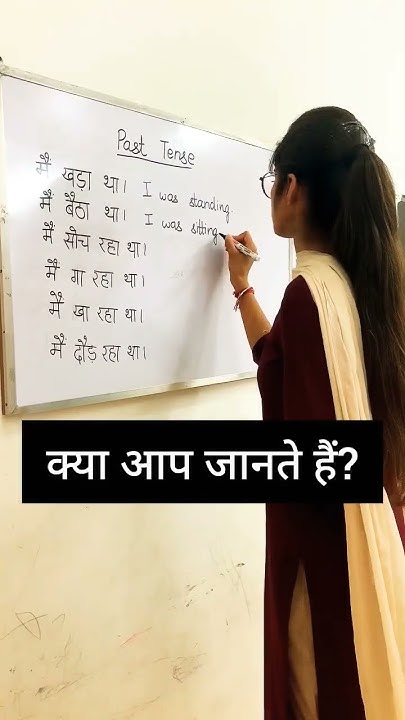 Past Tense
मैं खड़ा था। I was standing.
मैं बैठा था। I was sitting
मैं सोच रहा था।
मैं गा रहा था।
मैं खा रहा था।
मैं दौड़ रहा था।
क्या आप जानते हैं?